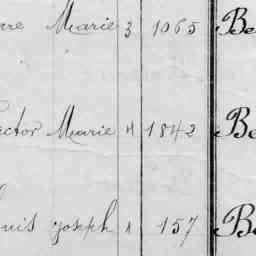 Marie 3 1065 Be
ector Marie 4 1842 Be
uis joseph 1 157 Be